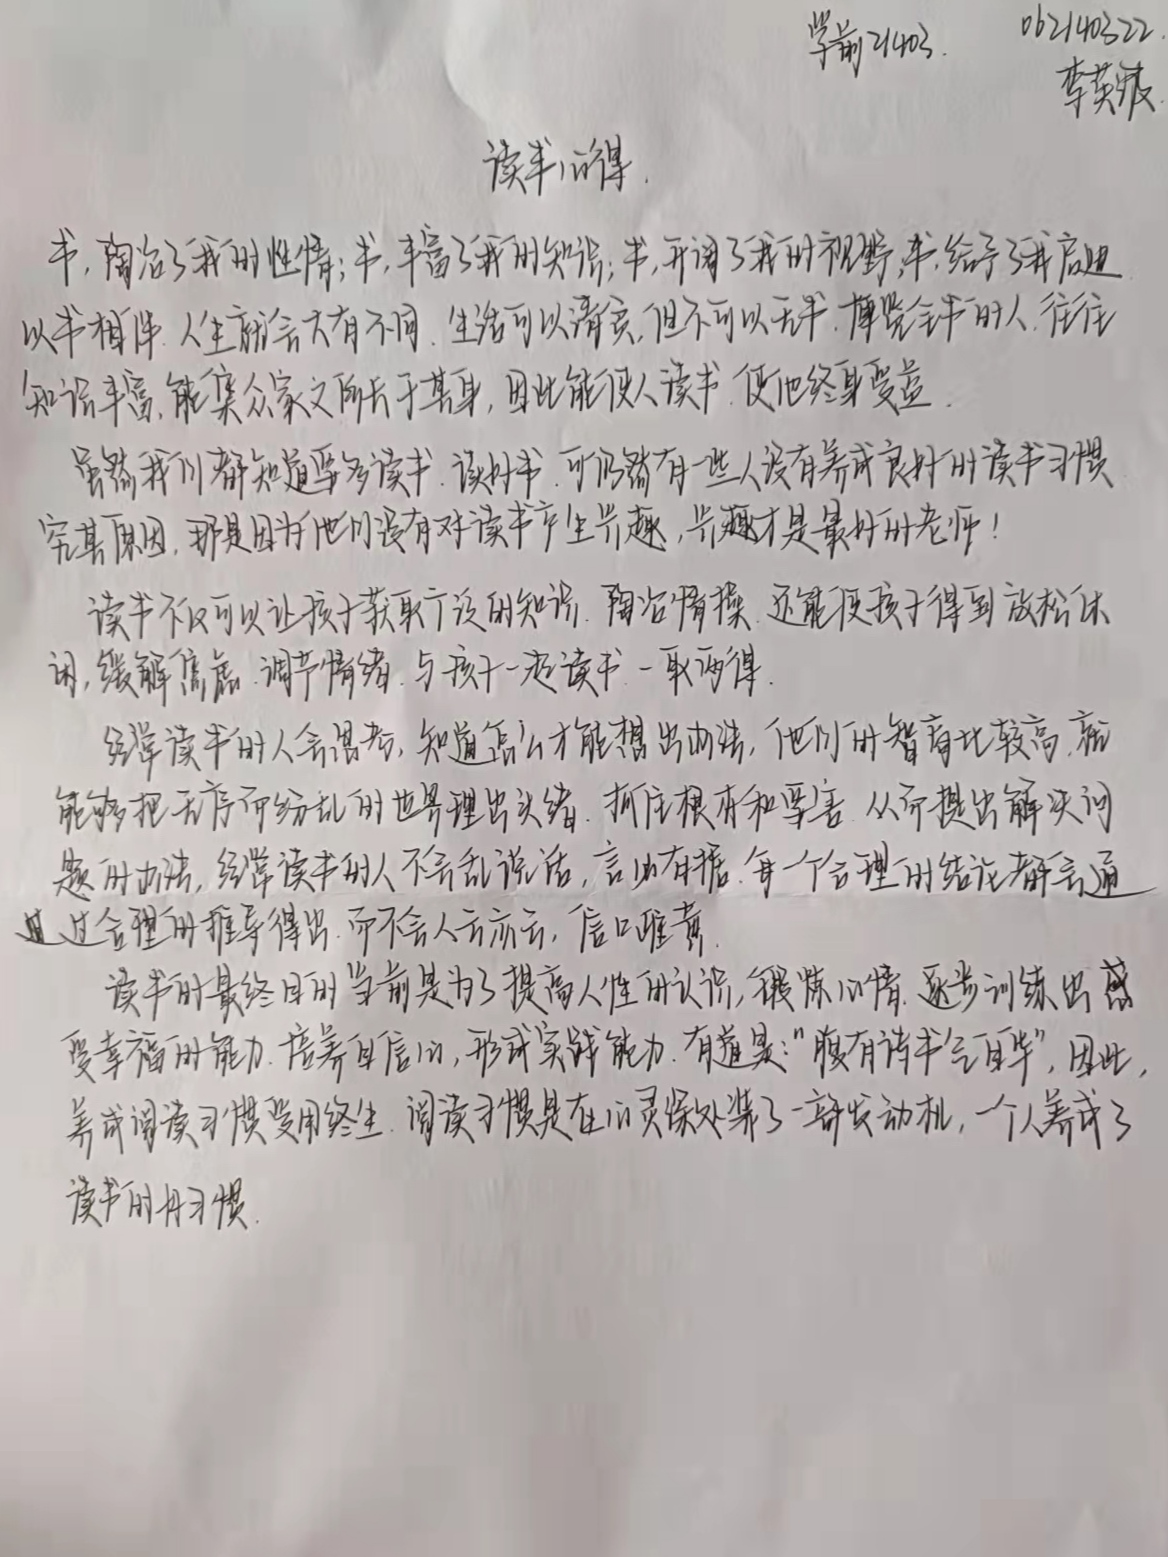 学前21403. 062140322.
李英
读书心得.
书,陶冶了我的性情;书,丰富了我的知识;书,开阔了我的视野;书,给予了我启迪
以书相伴.人生就会大有不同.生活可以清贫,但不可以无书.博览全书的人.往往
知识丰富,能集众家文所长于其身,因此能使人读书.使他终身受益.
虽然我们都知道要多读书.读好书.可仍然有一些人没有养成良好的读书习惯
究其原因,那是因为他们没有对读书产生兴趣,兴趣才是最好的老师!
读书不仅可以让孩子获取广泛的知识.陶冶情操.还能使孩子得到放松休
闲,缓解焦虑.调节情绪.与孩子一起读书.一取两得.
经常读书的人会思考,知道怎么才能想出办法,他们的智商比较高.就
能够把无序而纷乱的世界理出头绪.抓住根本和要害.从而提出解决问
题的办法,经常读书的人不会乱说话,言必有据.每一个合理的结论都会通
过合理的推导得出.而不会人云亦云,信口雌黄.
读书的最终目的当前是为了提高人性的认识,锻炼心情.逐步训练出感
受幸福的能力.培养自信心,形成实践能力.有道是:"腹有诗书气自华",因此,
养成阅读习惯受用终生.阅读习惯是在心灵深处装了一部发动机,一个人养成了
读书的习惯.